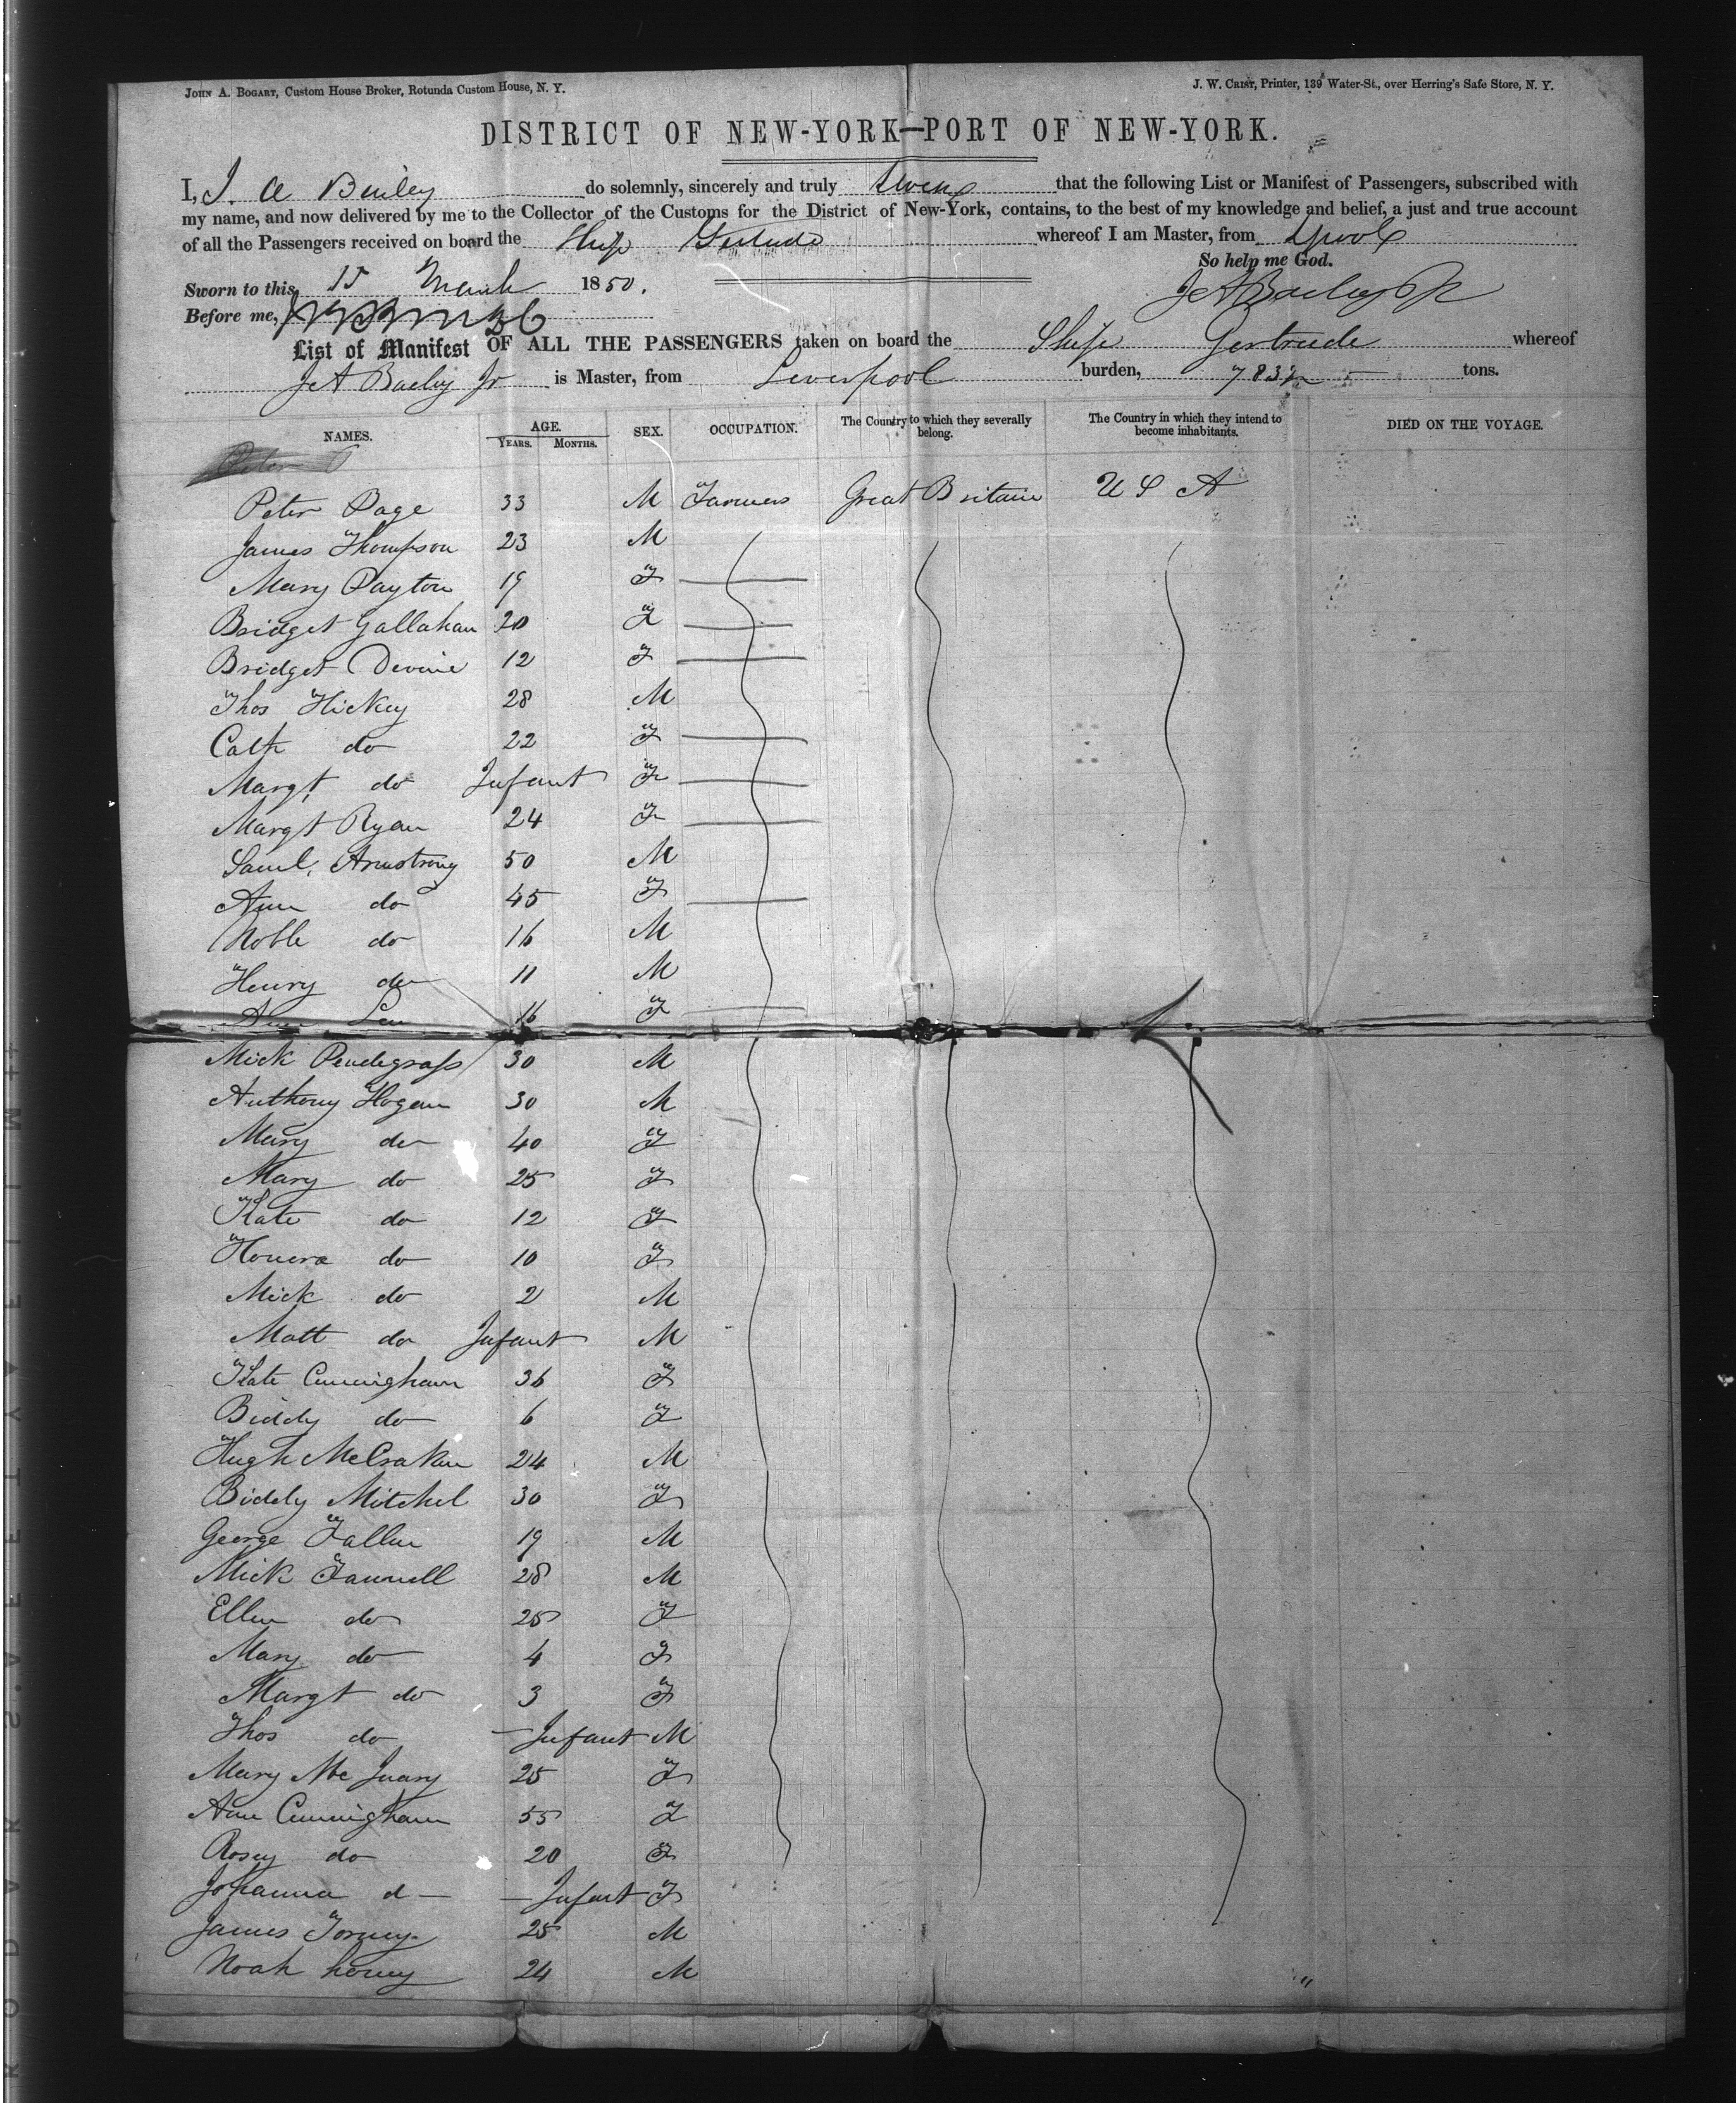 JOHN A. BOGART, Custom House Broker, Rotunda Custom House, N. Y. J. W. CRIST, Printer, 139 Water-St., over Herring's Safe Store, N. Y.
DISTRICT OF NEW-YORK—PORT OF NEW-YORK.
I, J. A Bailey do solemnly, sincerely and truly swear that the following List or Manifest of Passengers, subscribed with
my name, and now delivered by me to the Collector of the Customs for the District of New-York, contains, to the best of my knowledge and belief, a just and true account
of all the Passengers received on board the Ship Gertrude whereof I am Master, from Lpool
So help me God.
Sworn to this 15 March 1850. J A Bailey Jr
Before me,
List of Manifest OF ALL THE PASSENGERS taken on board the Ship Gertrude whereof
J A Bailey Jr is Master, from Liverpool burden, tons.
NAMES. AGE. YEARS. MONTHS. SEX. OCCUPATION. The Country to which they severally belong. The Country in which they intend to become inhabitants. DIED ON THE VOYAGE.
Peter
Peter Page 33 M Farmers Great Britain U S A
James Thompson 23 M
Mary Payton 19 F
Bridget Gallahan 20 F
Bridget Devine 12 F
Thos Hickey 28 M
Cath do 22 F
Margt do Infant F
Margt Ryan 24 F
Saml. Armstrong 50 M
Ann do 45 F
Noble do 16 M
Henry do 11 M
Ann 16 F
Mick Pendegrass 30 M
Anthony Hogan 30 M
Mary do 40 F
Mary do 25 F
Kate do 12 F
Honora do 10 F
Mick do 2 M
Matt do Infant M
Kate Cunningham 36 F
Biddy do 6 F
Hugh McCraken 24 M
Biddy Mitchel 30 F
George Fallen 19 M
Mick Fannell 28 M
Ellen do 25 F
Mary do 4 F
Margt do 3 F
Thos do — Infant M
Mary Mc 25 F
Ann Cunningham 55 F
Rosey do 20 F
Johanna d — — Infant F
James Torney 25 M
Noah 24 M